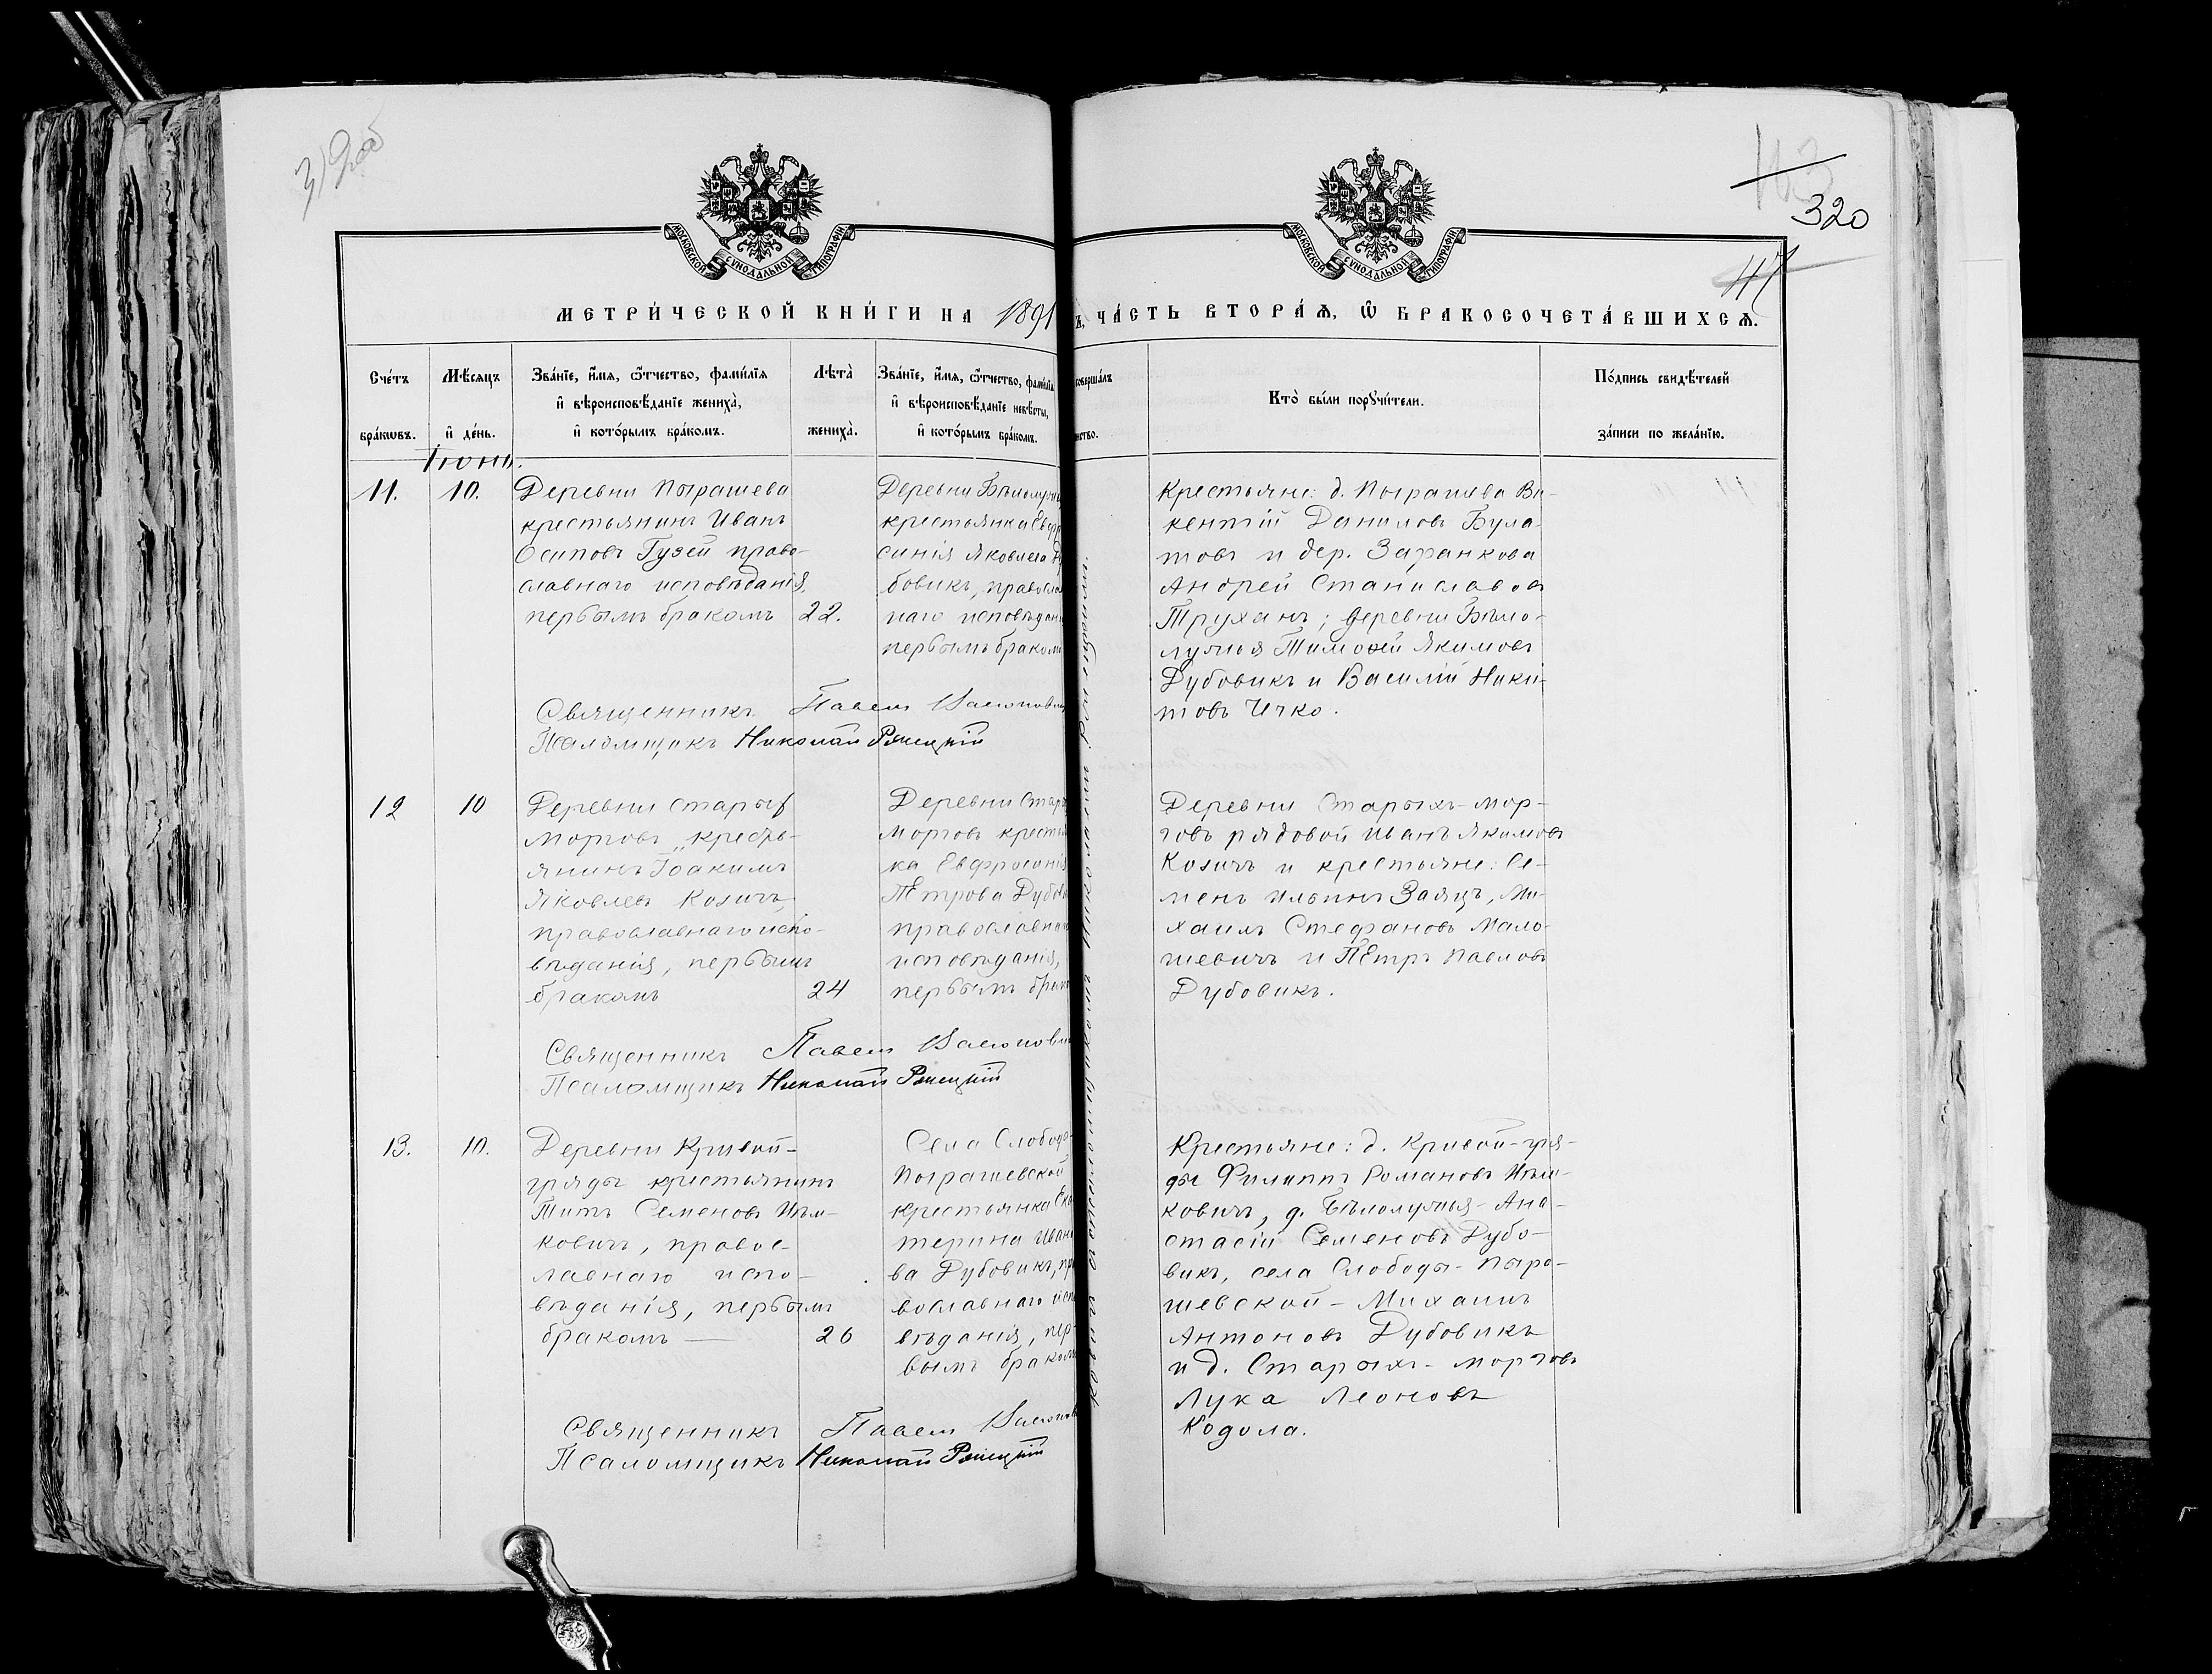 319 об
103
320
47
МОСКОВСКОЙ СУНОДАЛЬНОЙ ТИПОГРАФІИ
МОСКОВСКОЙ СУНОДАЛЬНОЙ ТИПОГРАФІИ
МЕТРИ́ЧЕСКОЙ КНИ́ГИ НА 1891
Ъ, ЧА́СТЬ ВТОРА́Ѧ, Ѽ БРАКОСОЧЕТА́ВШИХСѦ.
Сче́тъ бра́кѡвъ.
Мѣ́сѧцъ и҆ де́нь.
Зва́нїе, и҆́мѧ, ѻ҆́тчество, фами́лїѧ
и҆ вѣроисповѣ́данїе жениха̀,
и҆ кото́рымъ бра́комъ.
Лѣта̀ жениха̀.
Зва́нїе, и҆́мѧ, ѻ҆́тчество, фами́лїѧ
и҆ вѣроисповѣ́данїе невѣ́сты,
и҆ кото́рымъ бра́комъ.
соверша́лъ
нство.
Кто̀ бы́ли порꙋчи́тели.
По́дпись свидѣ́телей
за́писи по жела́нїю.
Іюнь.
11. 10.
Деревни Пырашева
крестьянинъ Иванъ
Осиповъ Гузей право-
славнаго исповѣданія,
первымъ бракомъ 22.
Деревни Бѣлолуч
крестьянка Евфр
синія Яковлева Ду
бовикъ, правосла
наго исповѣдан
первымъ браком
Крестьяне: д. Пырашева Ви-
кентій Даниловъ Була-
товъ и дер. Заранкова
Андрей Станиславовъ
Труханъ; деревни Бѣло-
лучья Тимоѳей Якимовъ
Дубовикъ и Василій Ники-
товъ Ичко.
Священникъ Павелъ
Псаломщикъ Николай
12 10
Деревни Старых
Морговъ кресть-
янинъ Іоакимъ
Яковлевъ Козичъ,
православнаго испо-
вѣданія, первымъ
бракомъ 24
Деревни Стар
Морговъ крестья
ка Евфросинія
Петрова Дубов
православнаг
исповѣданія,
первымъ брако
Деревни Старыхъ-Мор-
говъ рядовой Иванъ Якимовъ
Козичъ и крестьяне: Се-
менъ Ильинъ Заяцъ, Ми-
хаилъ Стефановъ Мало-
шевичъ и Петръ Павловъ
Дубовикъ.
Священникъ Павелъ
Псаломщикъ Николай
13. 10.
Деревни Кривой-
гряды крестьянинъ
Титъ Семеновъ Ильи-
ковичъ, правос-
лавнаго испо-
вѣданія, первымъ
бракомъ — 26
Села Слободы
Пырашевской
крестьянка Ека
терина Ивано
ва Дубовикъ, пр
вославнаго исп
вѣданія, пер-
вымъ браком
Крестьяне: д. Кривой-гря-
ды Филиппъ Романовъ
ковичъ, д. Бѣлолучья - Ана-
стасій Семеновъ Дубо-
викъ, села Слободы-Пыра-
шевской - Михаилъ
Антоновъ Дубовикъ
и д. Старыхъ-Морговъ
Лука Леоновъ
Кодола.
Священникъ Павелъ
Псаломщикъ Николай